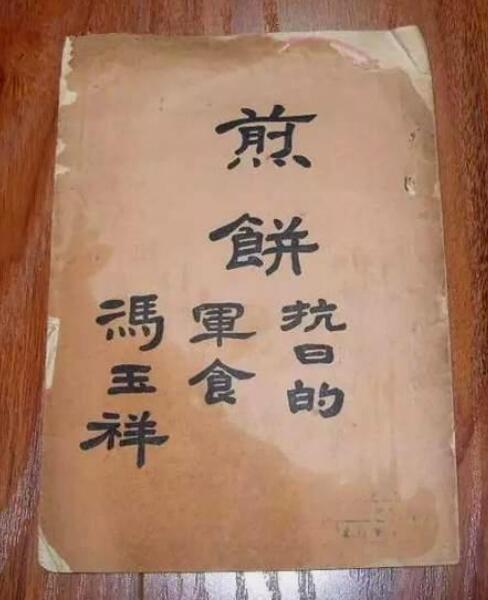 煎餅
抗日的
軍食
馮玉祥